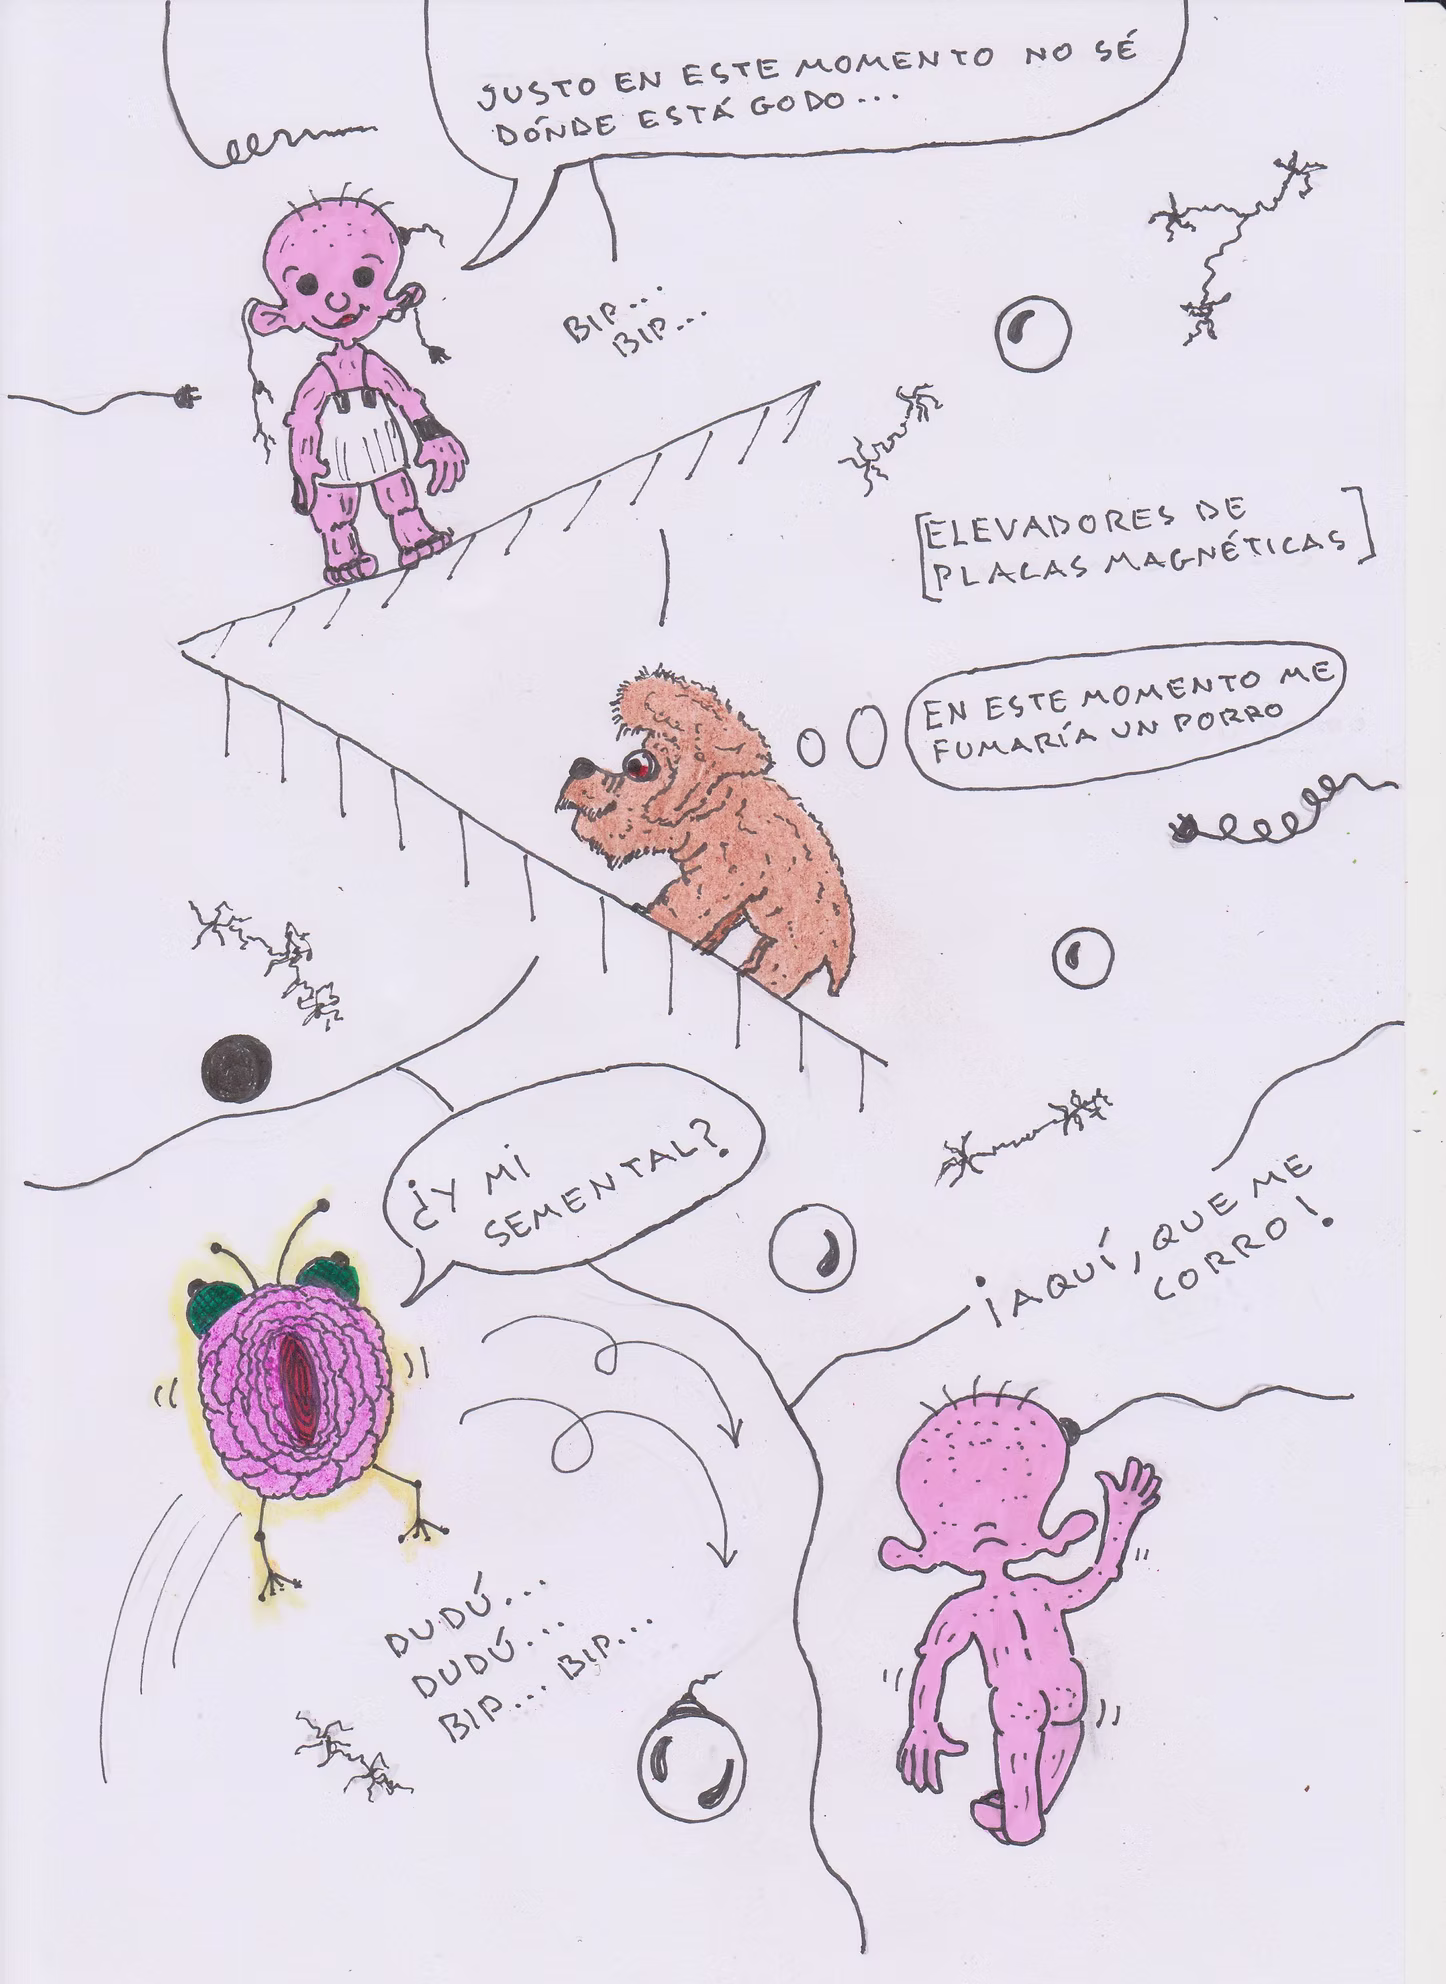 JUSTO EN ESTE MOMENTO NO SÉ
DÓNDE ESTÁ GODO...
BIP...
BIP...
[ELEVADORES DE
PLACAS MAGNÉTICAS]
EN ESTE MOMENTO ME
FUMARÍA UN PORRO
¿Y MI
SEMENTAL?
¡AQUÍ, QUE ME
CORRO!
DUDÚ...
DUDÚ...
BIP... BIP...